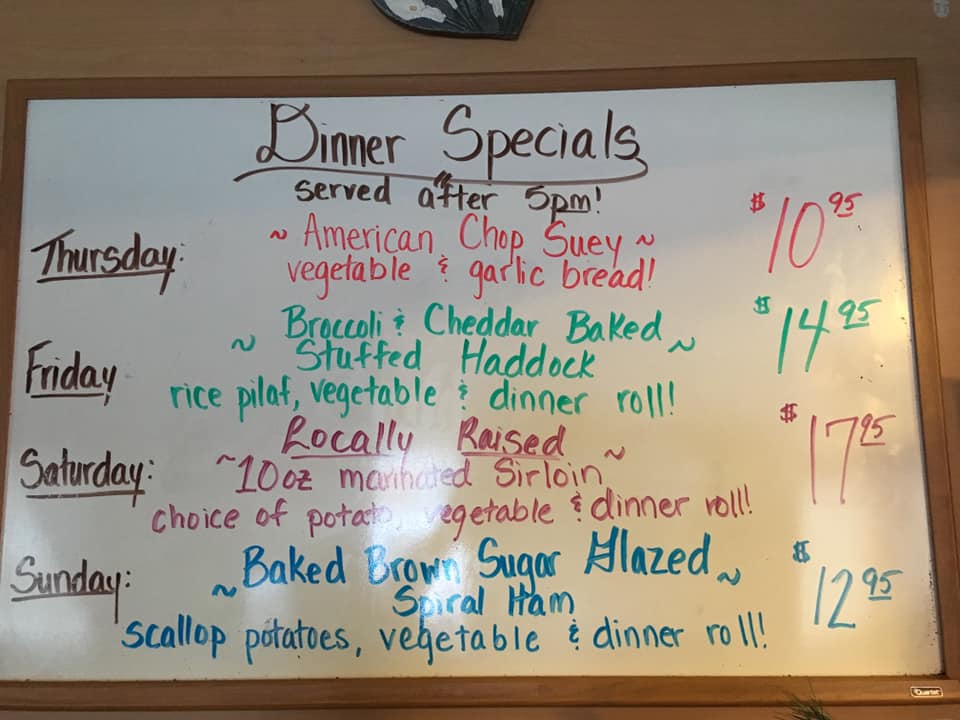 Dinner Specials
served after 5pm!
Thursday: ~ American Chop Suey ~ $10.95
vegetable & garlic bread!
Friday ~ Broccoli & Cheddar Baked ~ $14.95
Stuffed Haddock
rice pilaf, vegetable & dinner roll!
Locally Raised $17.95
Saturday: ~10oz marinated Sirloin~
choice of potato, vegetable & dinner roll!
Sunday: ~Baked Brown Sugar Glazed~ $12.95
Spiral Ham
scallop potatoes, vegetable & dinner roll!
Quartet